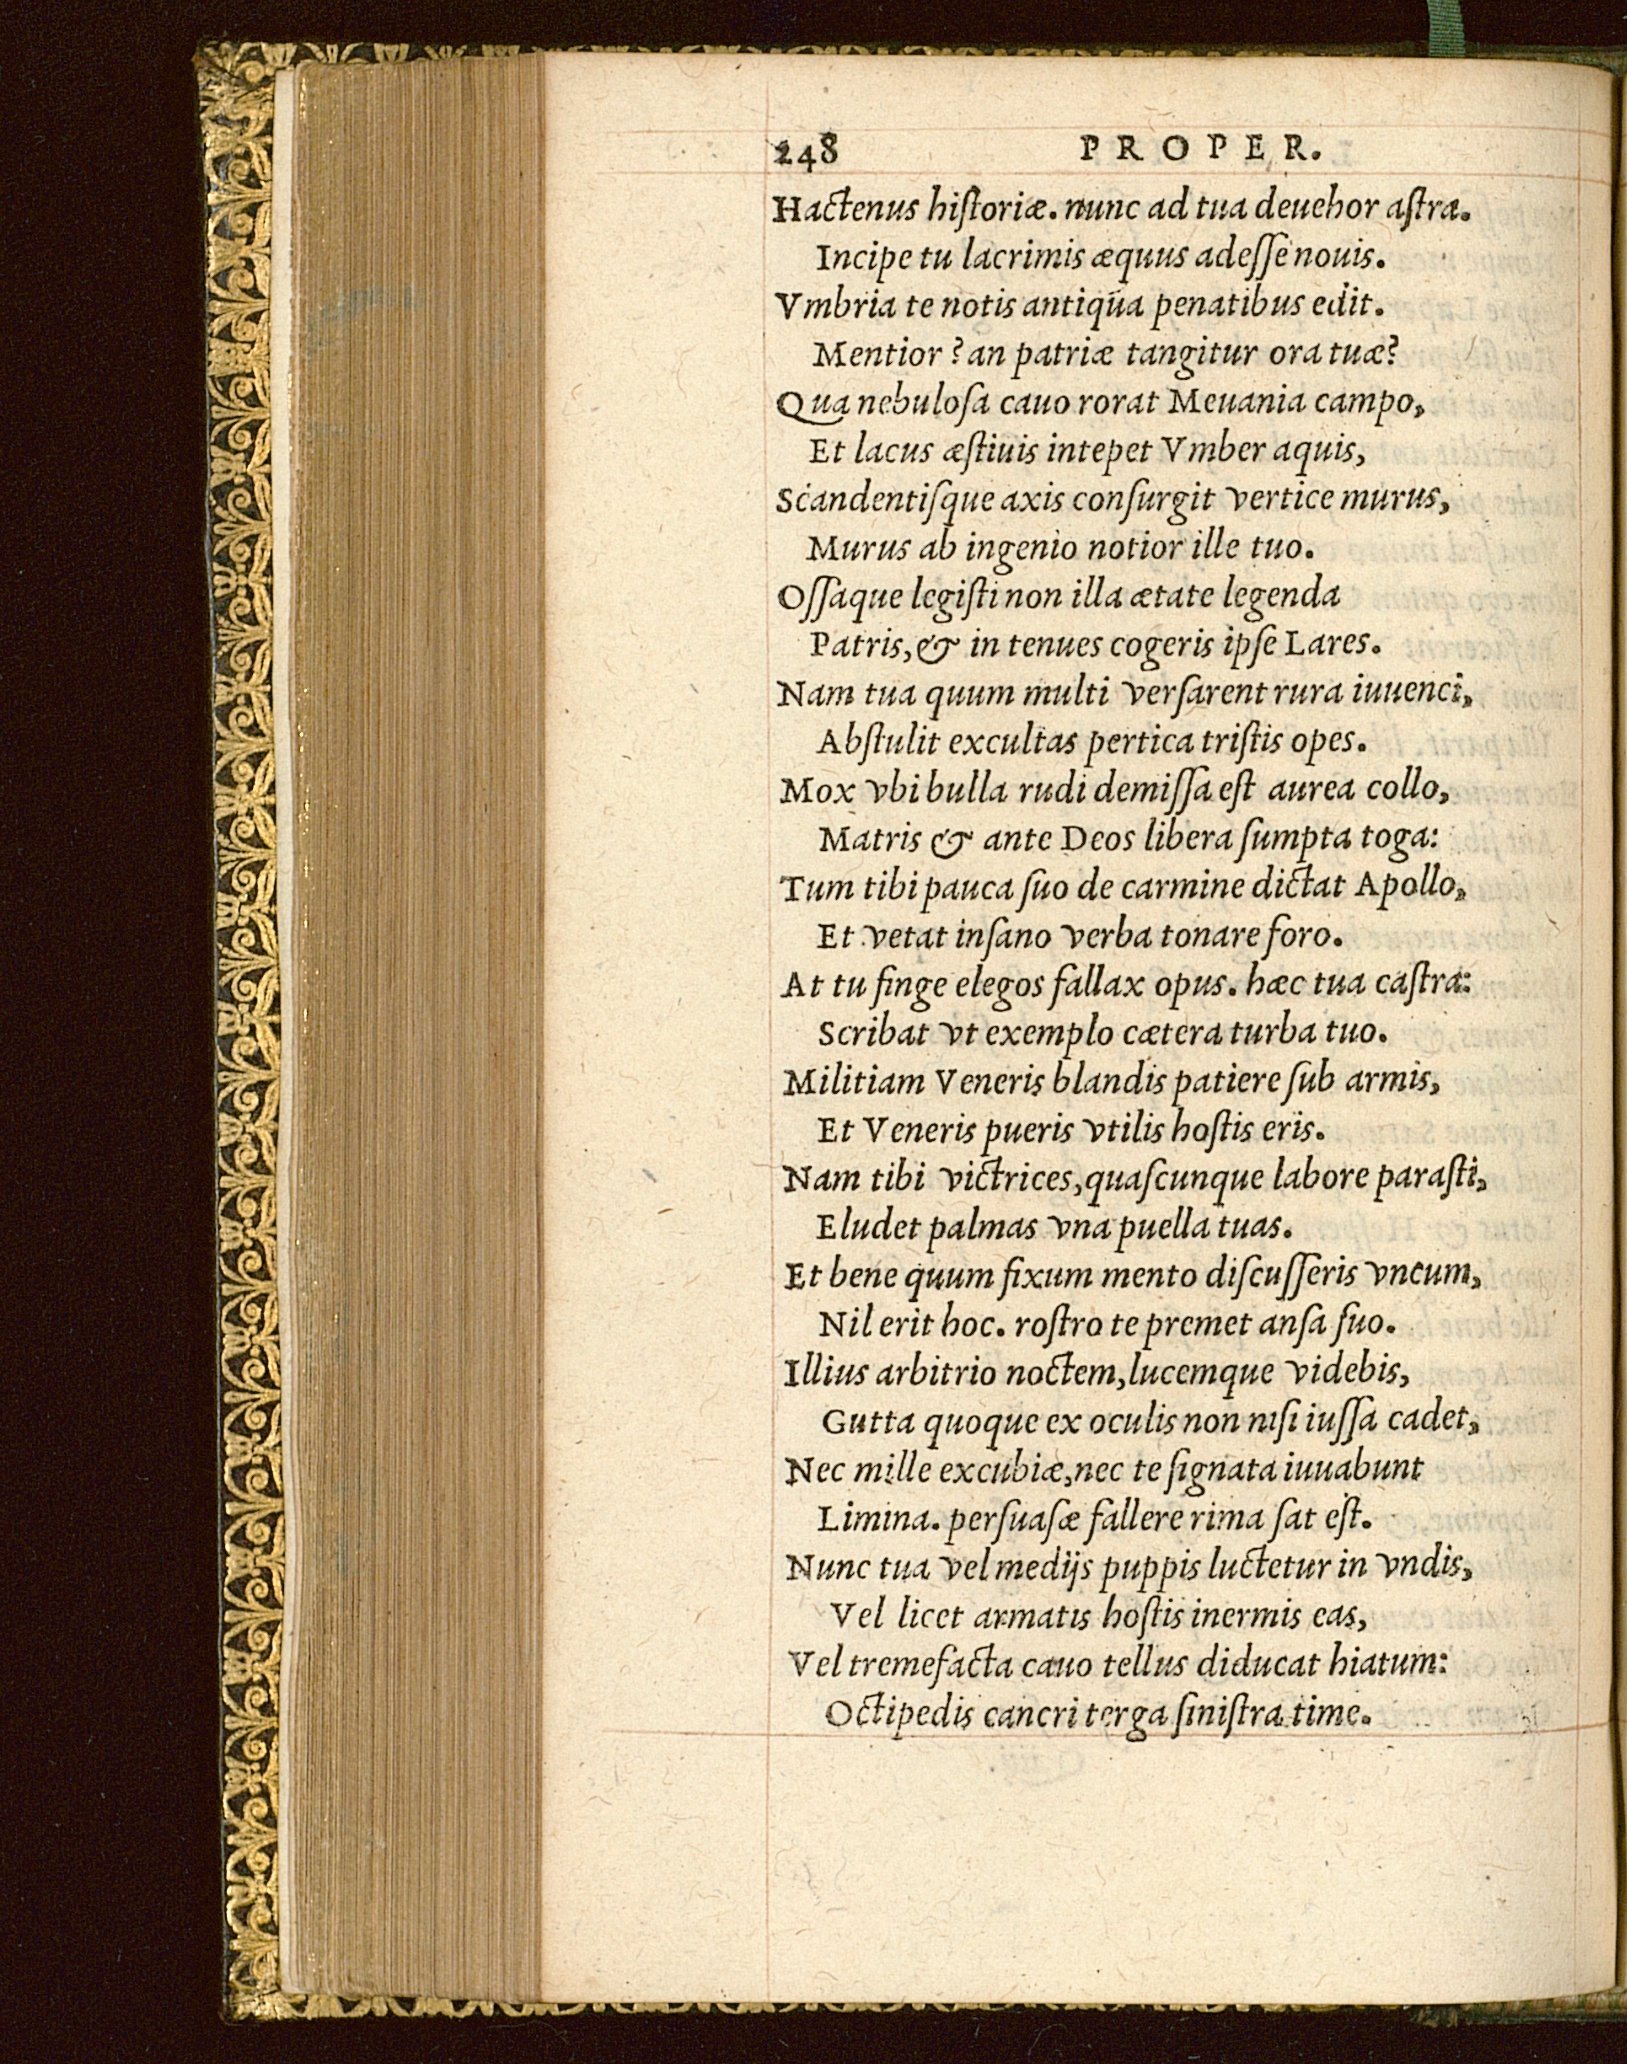 248 PROPER.
Hactenus hiſtoriæ. nunc ad tua deuehor aſtra.
Incipe tu lacrimis æquus adeſſe nouis.
Vmbria te notis antiqua penatibus edit.
Mentior? an patriæ tangitur ora tuæ?
Qua nebuloſa cauo rorat Meuania campo,
Et lacus æſtiuis intepet Vmber aquis,
Scandentiſque axis conſurgit vertice murus,
Murus ab ingenio notior ille tuo.
Oſſaque legiſti non illa ætate legenda
Patris, & in tenues cogeris ipſe Lares.
Nam tua quum multi verſarent rura iuuenci,
Abſtulit excultas pertica triſtis opes.
Mox vbi bulla rudi demiſſa eſt aurea collo,
Matris & ante Deos libera ſumpta toga:
Tum tibi pauca ſuo de carmine dictat Apollo,
Et vetat inſano verba tonare foro.
At tu finge elegos fallax opus. hæc tua caſtra:
Scribat vt exemplo cætera turba tuo.
Militiam Veneris blandis patiere ſub armis,
Et Veneris pueris vtilis hoſtis eris.
Nam tibi victrices, quaſcunque labore paraſti,
Eludet palmas vna puella tuas.
Et bene quum fixum mento diſcuſſeris vncum,
Nil erit hoc. roſtro te premet anſa ſuo.
Illius arbitrio noctem, lucemque videbis,
Gutta quoque ex oculis non niſi iuſſa cadet,
Nec mille excubiæ, nec te ſignata iuuabunt
Limina. perſuaſæ fallere rima ſat eſt.
Nunc tua vel medijs puppis luctetur in vndis,
Vel licet armatis hoſtis inermis eas,
Vel tremefacta cauo tellus diducat hiatum:
Octipedis cancri terga ſiniſtra time.